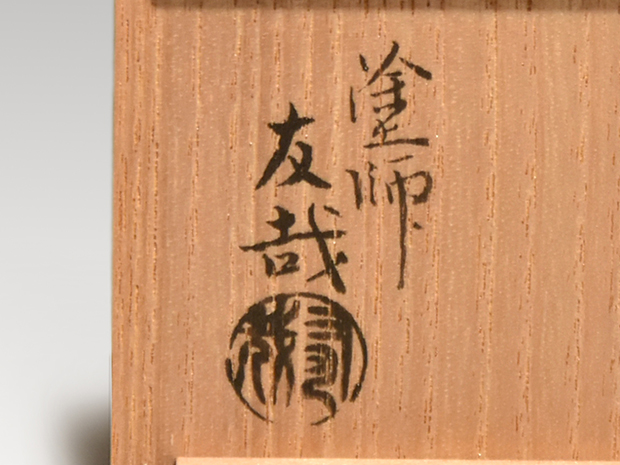 塗師
友哉